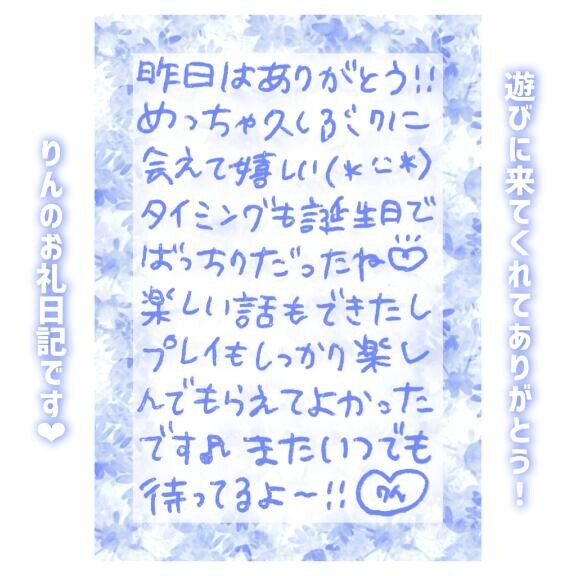 遊びに来てくれてありがとう！
昨日はありがとう!!
めっちゃ久しぶりに
会えて嬉しい(*ﾆ*)
タイミングも誕生日で
ばっちりだったね♡
楽しい話もできたし
プレイもしっかり楽し
んでもらえてよかった
です♪またいつでも
待ってるよ〜!!りん
りんのお礼日記です❤